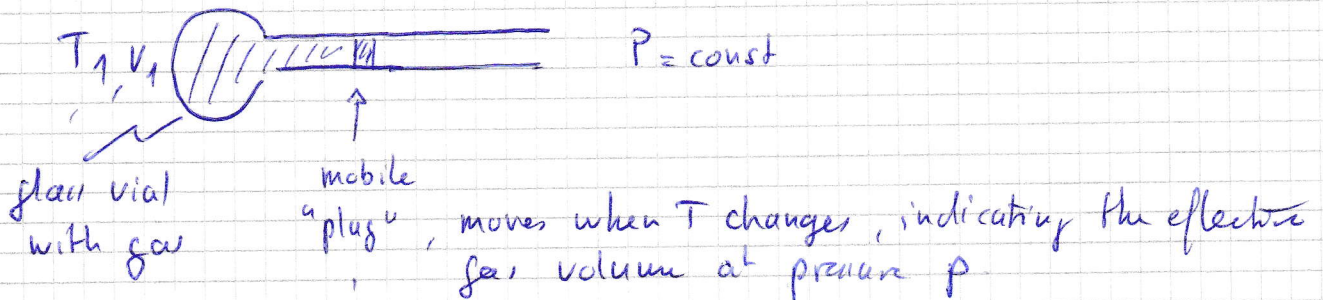 T₁, V₁
P = const
glass vial
with gas
mobile
"plug", moves when T changes, indicating the effective
gas volume at pressure p